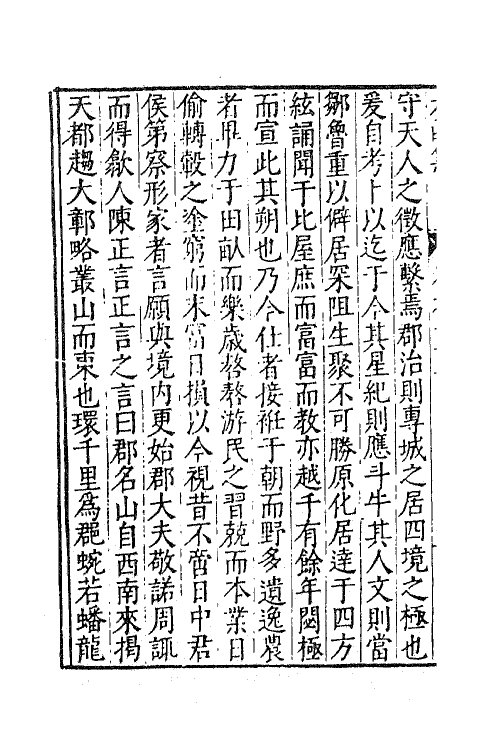 守天人之徵應繫焉郡治則專城之居四境之極也
爰自考卜以迄于今其星紀則應斗牛其人文則當
鄒魯重以僻居深阻生聚不可勝原化居達于四方
絃誦聞于比屋庶而富富而教亦越千有餘年閟極
而宣此其朔也乃今仕者接袵于朝而野多遺逸農
者毕力于田畝而樂歲嗸嗸游民之習兢而本業日
偷轉轂之塗窮而末富日損以今視昔不啻日中君
侯第察形家者言願與境內更始郡大夫敬諾周諏
而得歙人陳正言正言之言曰郡名山自西南來揭
天都趨大鄣略叢山而東也環千里為郡蜿若蟠龍